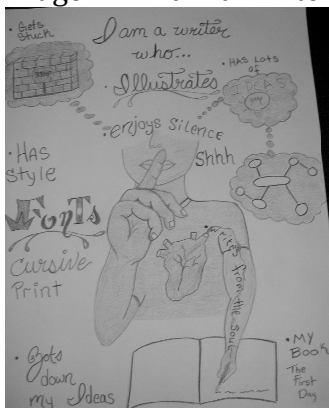 I am a writer
who...
• Gets
Stuck
• Illustrates
• HAS LOTS
OF
IDEAS
• enjoys SILENCE
Shhh
• HAS
Style
FONTS
Cursive
Print
• writes from the soul
• Jots
down
my Ideas
• MY
BOOK
The
First
Day